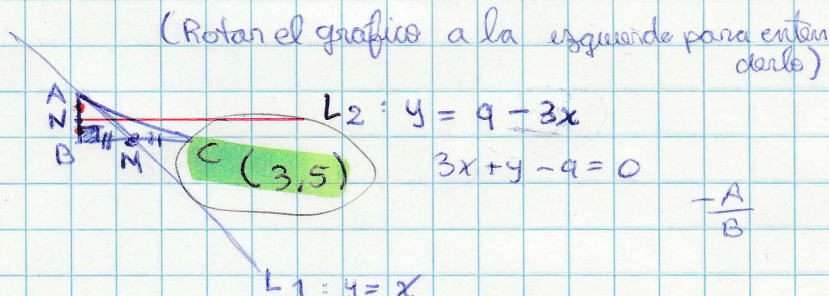 (Rotar el grafico a la izquierda para enten
derlo)
A
N
B
M
C (3,5)
L2 : y = 9 - 3x
3x + y - 9 = 0
-A
B
L1 : y = x